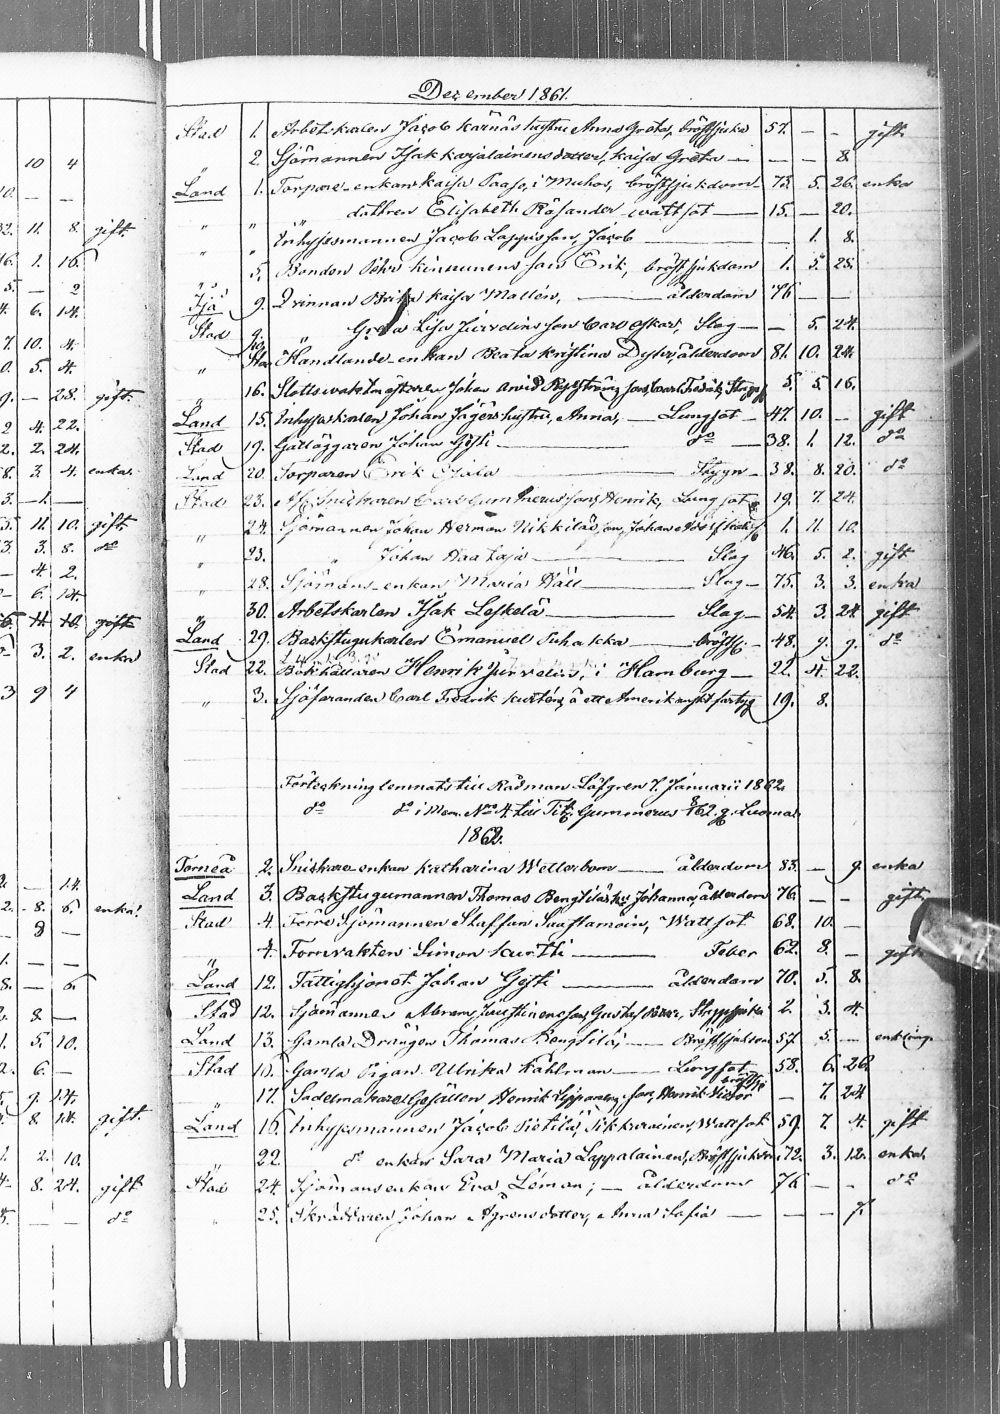 10 4
10. — —
32. 11. 8. gift
16. 1. 16.
5. — 2
4. 6. 14.
7. 10. 4.
0. 5. 4.
9. — 28. gift.
2 4. 22.
2. 2. 24.
8. 3 4. enka.
3. — 1. —
5. 11. 10. gift
3. 3. 8. do
— 4. 2.
— 6. 14.
5. 11. 10. gift
3. 2. enka
3 9 4
— 14.
2. 8. 6. enka.
— 8 —
1. — —
8. — 6.
2. 8 —
1. 5. 10.
2. 6. —
5. 9. 14.
8 14. gift.
1. 2. 10.
4. 8. 24. gift
5. — — do
Dezember 1861.
Stad 1. Arbetskarlen Jacob Karnäs hustru Anna Greta, bröstsjuka 57. — — gift
" 2. Sjömannen Isak Karjalainens dotter, Kaisa Greta — — — 8.
Land 1. Torpare-enkan Kaisa Paaso, i Muhos, bröstsjukdom 73. 5. 26. enka
" " dottren Elisabeth Rösander wattsot — 15. — 20.
" " Inhysesmannen Jacob Lappis son, Jacob — 1. 8.
" 5. Bonden Pehr Kinnunens son Erik, bröstsjukdom 1. 5. 25.
Ijå 9. Qvinnan Brita Kaisa Mallén, — ålderdom 76 — —
Stad 9. Greta Lisa Jürvelins son Carl Oskar, Slag — — 5. 24.
" Handlande-enkan Beata Kristina Dyhr, ålderdom 81. 10. 24.
" 16. Johan Arvid son, Carl Fredrik, 5. 5. 16.
Land 15. Inhyseskarlen Johan Jägers hustru, Anna, — Lungsot — 47. 10. — gift
Stad 19. Garläggaren Johan Gösti — do — 38. 1. 12. do
Land 20. Torparen Erik Ojala — Stygn — 38. 8. 20. do
Stad 23. Snickaren Carl Gummerus son, Henrik, Lungsot 19. 7. 24.
" 24. Sjömannen Johan Herman Nikkiläs son, Johan Adolf 1. 11. 10.
" 23. " Johan Haataja — Slag 46. 5. 2. gift
" 28. Sjömans-enkan Maria Häll — Slag — 75. 3. 3. enka
" 30. Arbetskarlen Isak Leskelä — Slag — 54. 3 24 gift
Land 29. Backstugukarlen Emanuel Puhakka — bröstsj. — 48. 9. 9. do
Stad 22. Bokhållaren Henrik Jürvelin, i Hamburg — 22. 4. 22.
" 3. Sjöfaranden Carl Fredrik Kurtén, å ett Amerikanskt fartyg 19. 8.
Förteckning lemnats till Rådman Löfgren 7. Januarii 1862.
do do i Mem. No 4. till Tit. Gummerus
1862.
Torneå 2. Snickare enkan Katharina Wetterbom — ålderdom 83. — 9. enka
Land 3. Backstugumannen Thomas Bengtiläs hu Johanna, ålderdom 76. — — gift
Stad 4. Förre Sjömannen Staffan Saastamoin, Wattsot 68. 10. —
" 4. Tornvakten Simon Kurtti — Feber 62. 8. — gift
Land 12. Fattighjonet Johan Gösti — ålderdom 70. 5. 8.
Stad 12. Sjömannen Abram son, Gustaf Oskar, 2. 3. 4.
Land 13. Gamla Drängen Thomas Bengtilä, — Bröstsjukdom 57. 5. — enkling.
Stad 15. Gamla Pigan Ulrika Kahlman — Lungsot 58. 6. 26.
" 17. Sadelmakare Gesällen Henrik son, Henrik Victor bröstsj. — 7. 24
Land 16. Inhysesmannen Jacob Pietilä, Wattsot 59. 7. 4. gift
22. do enkan Sara Maria Lappalainen, Bröstsjukdom 72. 3. 12. enka.
Stad 24. Sjömansenkan Eva Léman; — ålderdom 76 — — do
" 25. Skräddaren Johan Ågrens dotter, Anna Sofia — — — 7.